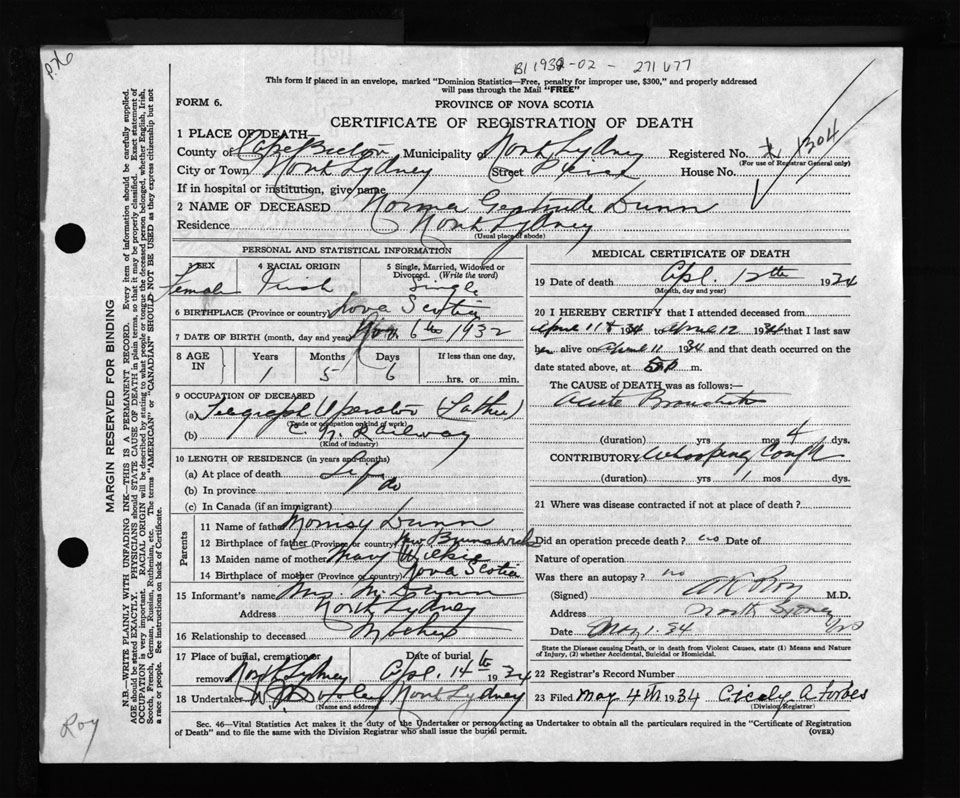 P.X6
B1 1932-02 - 271 477
This form if placed in an envelope, marked "Dominion Statistics—Free, penalty for improper use, $300," and properly addressed
will pass through the Mail "FREE"
FORM 6.
PROVINCE OF NOVA SCOTIA
CERTIFICATE OF REGISTRATION OF DEATH
1 PLACE OF DEATH—
County of Cape Breton Municipality of North Sydney Registered No. 1304
(For use of Registrar General only)
City or Town North Sydney Street Pierce House No.
If in hospital or institution, give name
2 NAME OF DECEASED Norma Gertrude Dunn
Residence North Sydney
(Usual place of abode)
PERSONAL AND STATISTICAL INFORMATION
3 SEX 4 RACIAL ORIGIN 5 Single, Married, Widowed or Divorced. (Write the word)
Female Irish Single
6 BIRTHPLACE (Province or country) Nova Scotia
7 DATE OF BIRTH (month, day and year) Nov. 6th 1932
8 AGE IN Years Months Days If less than one day,
1 5 6 hrs. or min.
9 OCCUPATION OF DECEASED
(a) Telegraph Operator (Father)
(Trade or occupation or kind of work)
(b) C. N. Railway
(Kind of industry)
10 LENGTH OF RESIDENCE (in years and months)
(a) At place of death Life
(b) In province do
(c) In Canada (if an immigrant)
Parents
11 Name of father Morrisy Dunn
12 Birthplace of father (Province or country) New Brunswick
13 Maiden name of mother Mary Wilkie
14 Birthplace of mother (Province or country) Nova Scotia
15 Informant's name Mrs. M. Dunn
Address North Sydney
16 Relationship to deceased Mother
17 Place of burial, cremation or removal Date of burial
North Sydney Apl. 14th 1934
18 Undertaker North Sydney
(Name and address)
MEDICAL CERTIFICATE OF DEATH
19 Date of death Apl. 12th 1934
(Month, day and year)
20 I HEREBY CERTIFY that I attended deceased from
April 11th 1934 to April 12 1934 that I last saw
her alive on April 11 1934 and that death occurred on the
date stated above, at 5 p m.
The CAUSE of DEATH was as follows:—
Acute Bronchitis
(duration) yrs mos 4 dys.
CONTRIBUTORY Whooping Cough
(duration) yrs mos dys.
21 Where was disease contracted if not at place of death?
Did an operation precede death? no Date of
Nature of operation
Was there an autopsy? no
(Signed) A R Roy M.D.
Address North Sydney NS
Date May 1. 34
State the Disease causing Death, or in death from Violent Causes, state (1) Means and Nature
of Injury, (2) whether Accidental, Suicidal or Homicidal.
22 Registrar's Record Number
23 Filed May 4th 1934 Cicely A. Forbes
(Division Registrar)
Sec. 46—Vital Statistics Act makes it the duty of the Undertaker or person acting as Undertaker to obtain all the particulars required in the "Certificate of Registration
of Death" and to file the same with the Division Registrar who shall issue the burial permit.
(OVER)
MARGIN RESERVED FOR BINDING
N.B.—WRITE PLAINLY WITH UNFADING INK—THIS IS A PERMANENT RECORD. Every item of information should be carefully supplied.
AGE should be stated EXACTLY. PHYSICIANS should STATE CAUSE OF DEATH in plain terms, so that it may be properly classified. Exact statement of
OCCUPATION is very important. RACIAL ORIGIN will be described by stating to what people or tongue the deceased person belonged, whether English, Irish,
Scotch, French, German, Russian, Ruthenian, etc. The terms "AMERICAN" or "CANADIAN" SHOULD NOT BE USED as they express citizenship but not
a race or people. See instructions on back of Certificate.
Roy